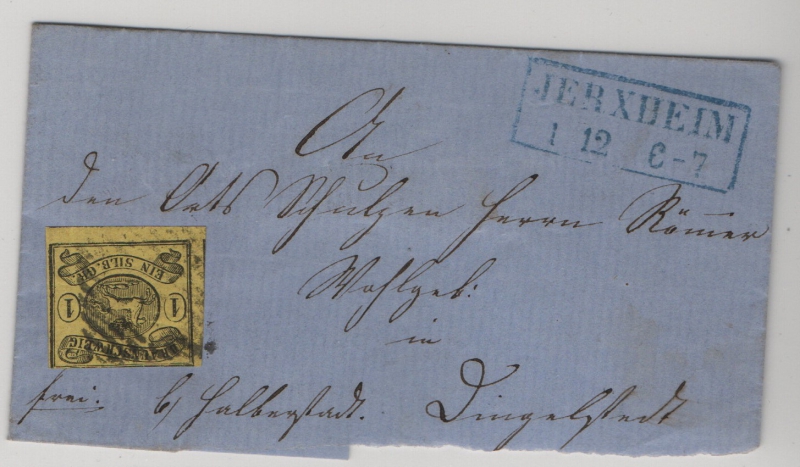 JERXHEIM
1 12 6-7
An
den Orts Schulzen Herrn Römer
Wohlgeb:
in
frei. b/ Halberstadt. Dingelstedt
EIN SILB. GR.
1 1
BRAUNSCHWEIG